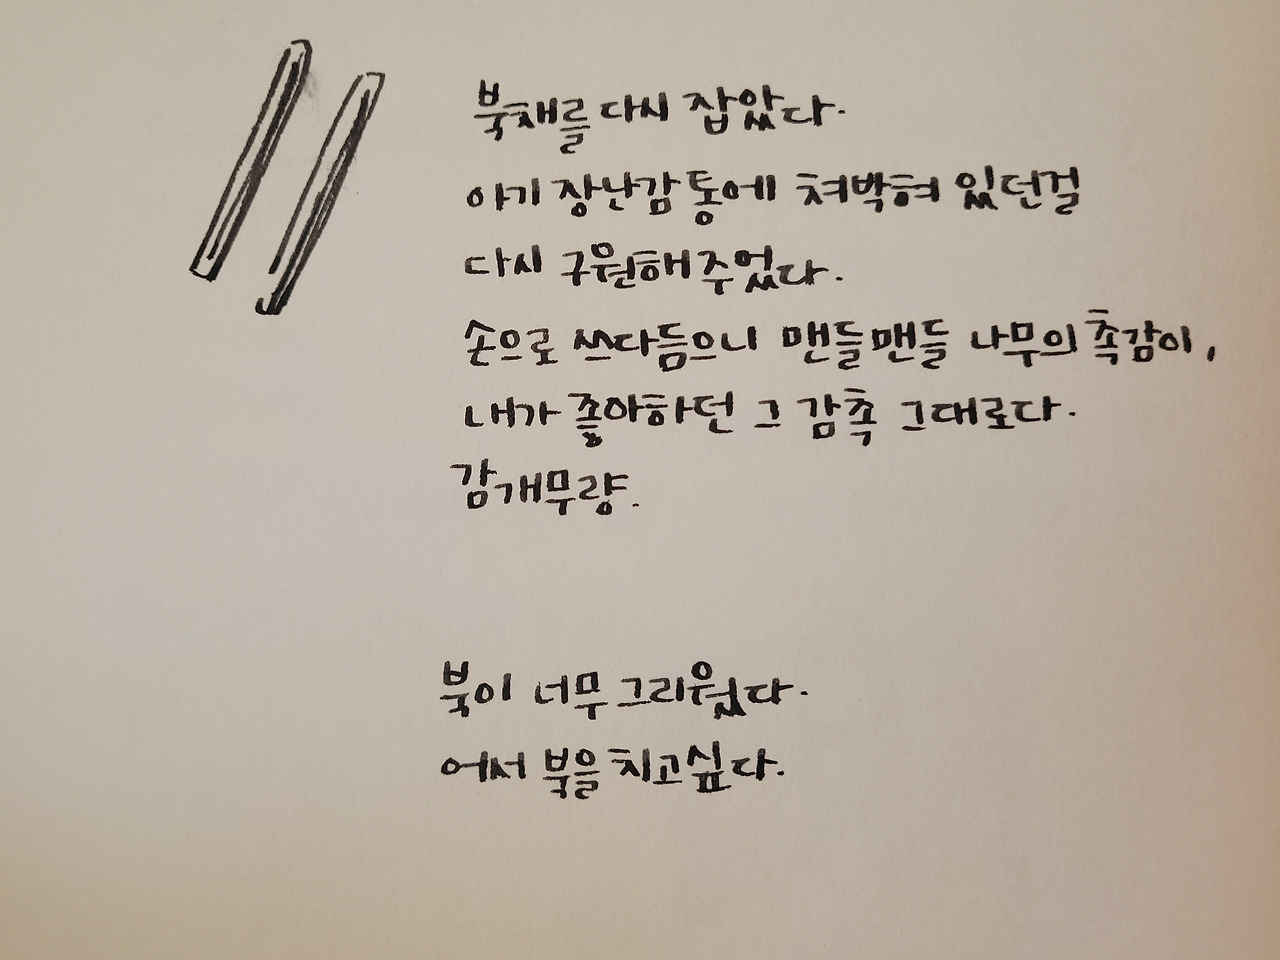 북채를 다시 잡았다.
아기 장난감 통에 쳐박혀 있던걸
다시 구원해주었다.
손으로 쓰다듬으니 맨들맨들 나무의 촉감이,
내가 좋아하던 그 감촉 그대로다.
감개무량.
북이 너무 그리웠다.
어서 북을 치고싶다.